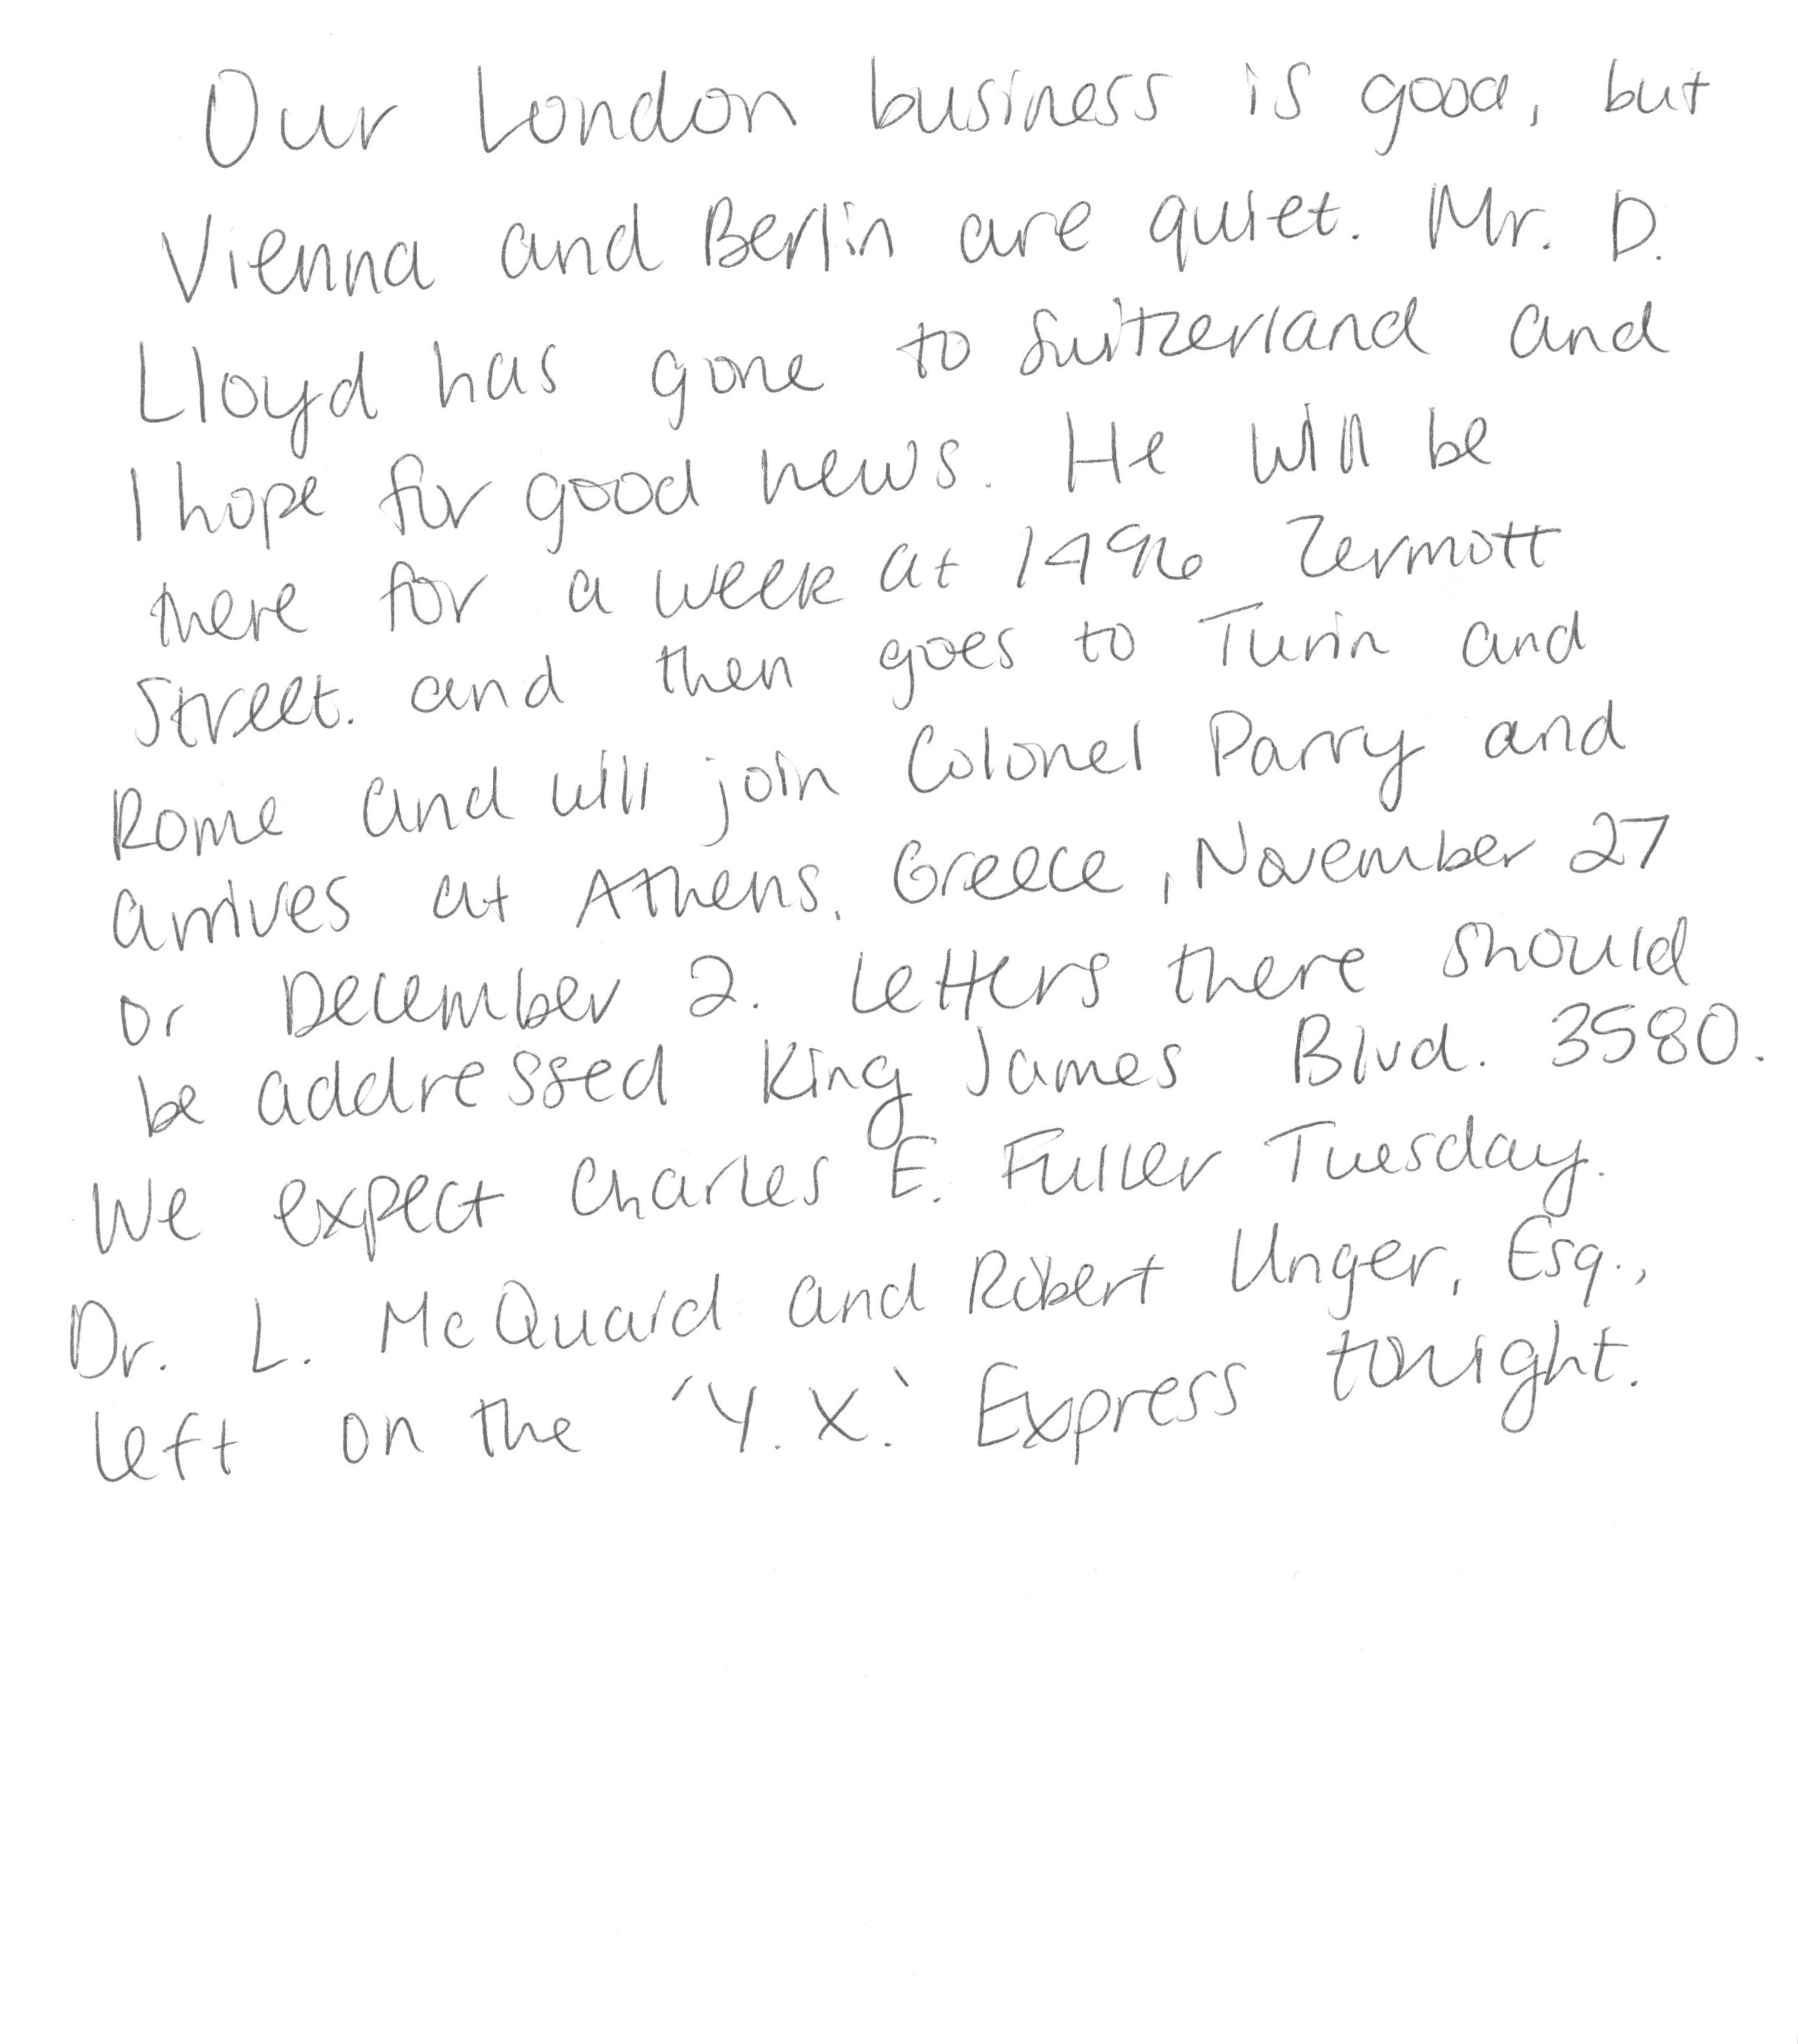 Our London business is good, but
Vienna and Berlin are quiet. Mr. D.
Lloyd has gone to Switzerland and
I hope for good news. He will be
there for a week at 1496 Zermott
Street. and then goes to Turin and
Rome and will join Colonel Parry and
arrives at Athens, Greece, November 27
or December 2. Letters there should
be addressed King James Blvd. 3580.
We expect Charles E. Fuller Tuesday.
Dr. L. McQuaid and Robert Unger, Esq.,
left on the 'Y.X.' Express tonight.